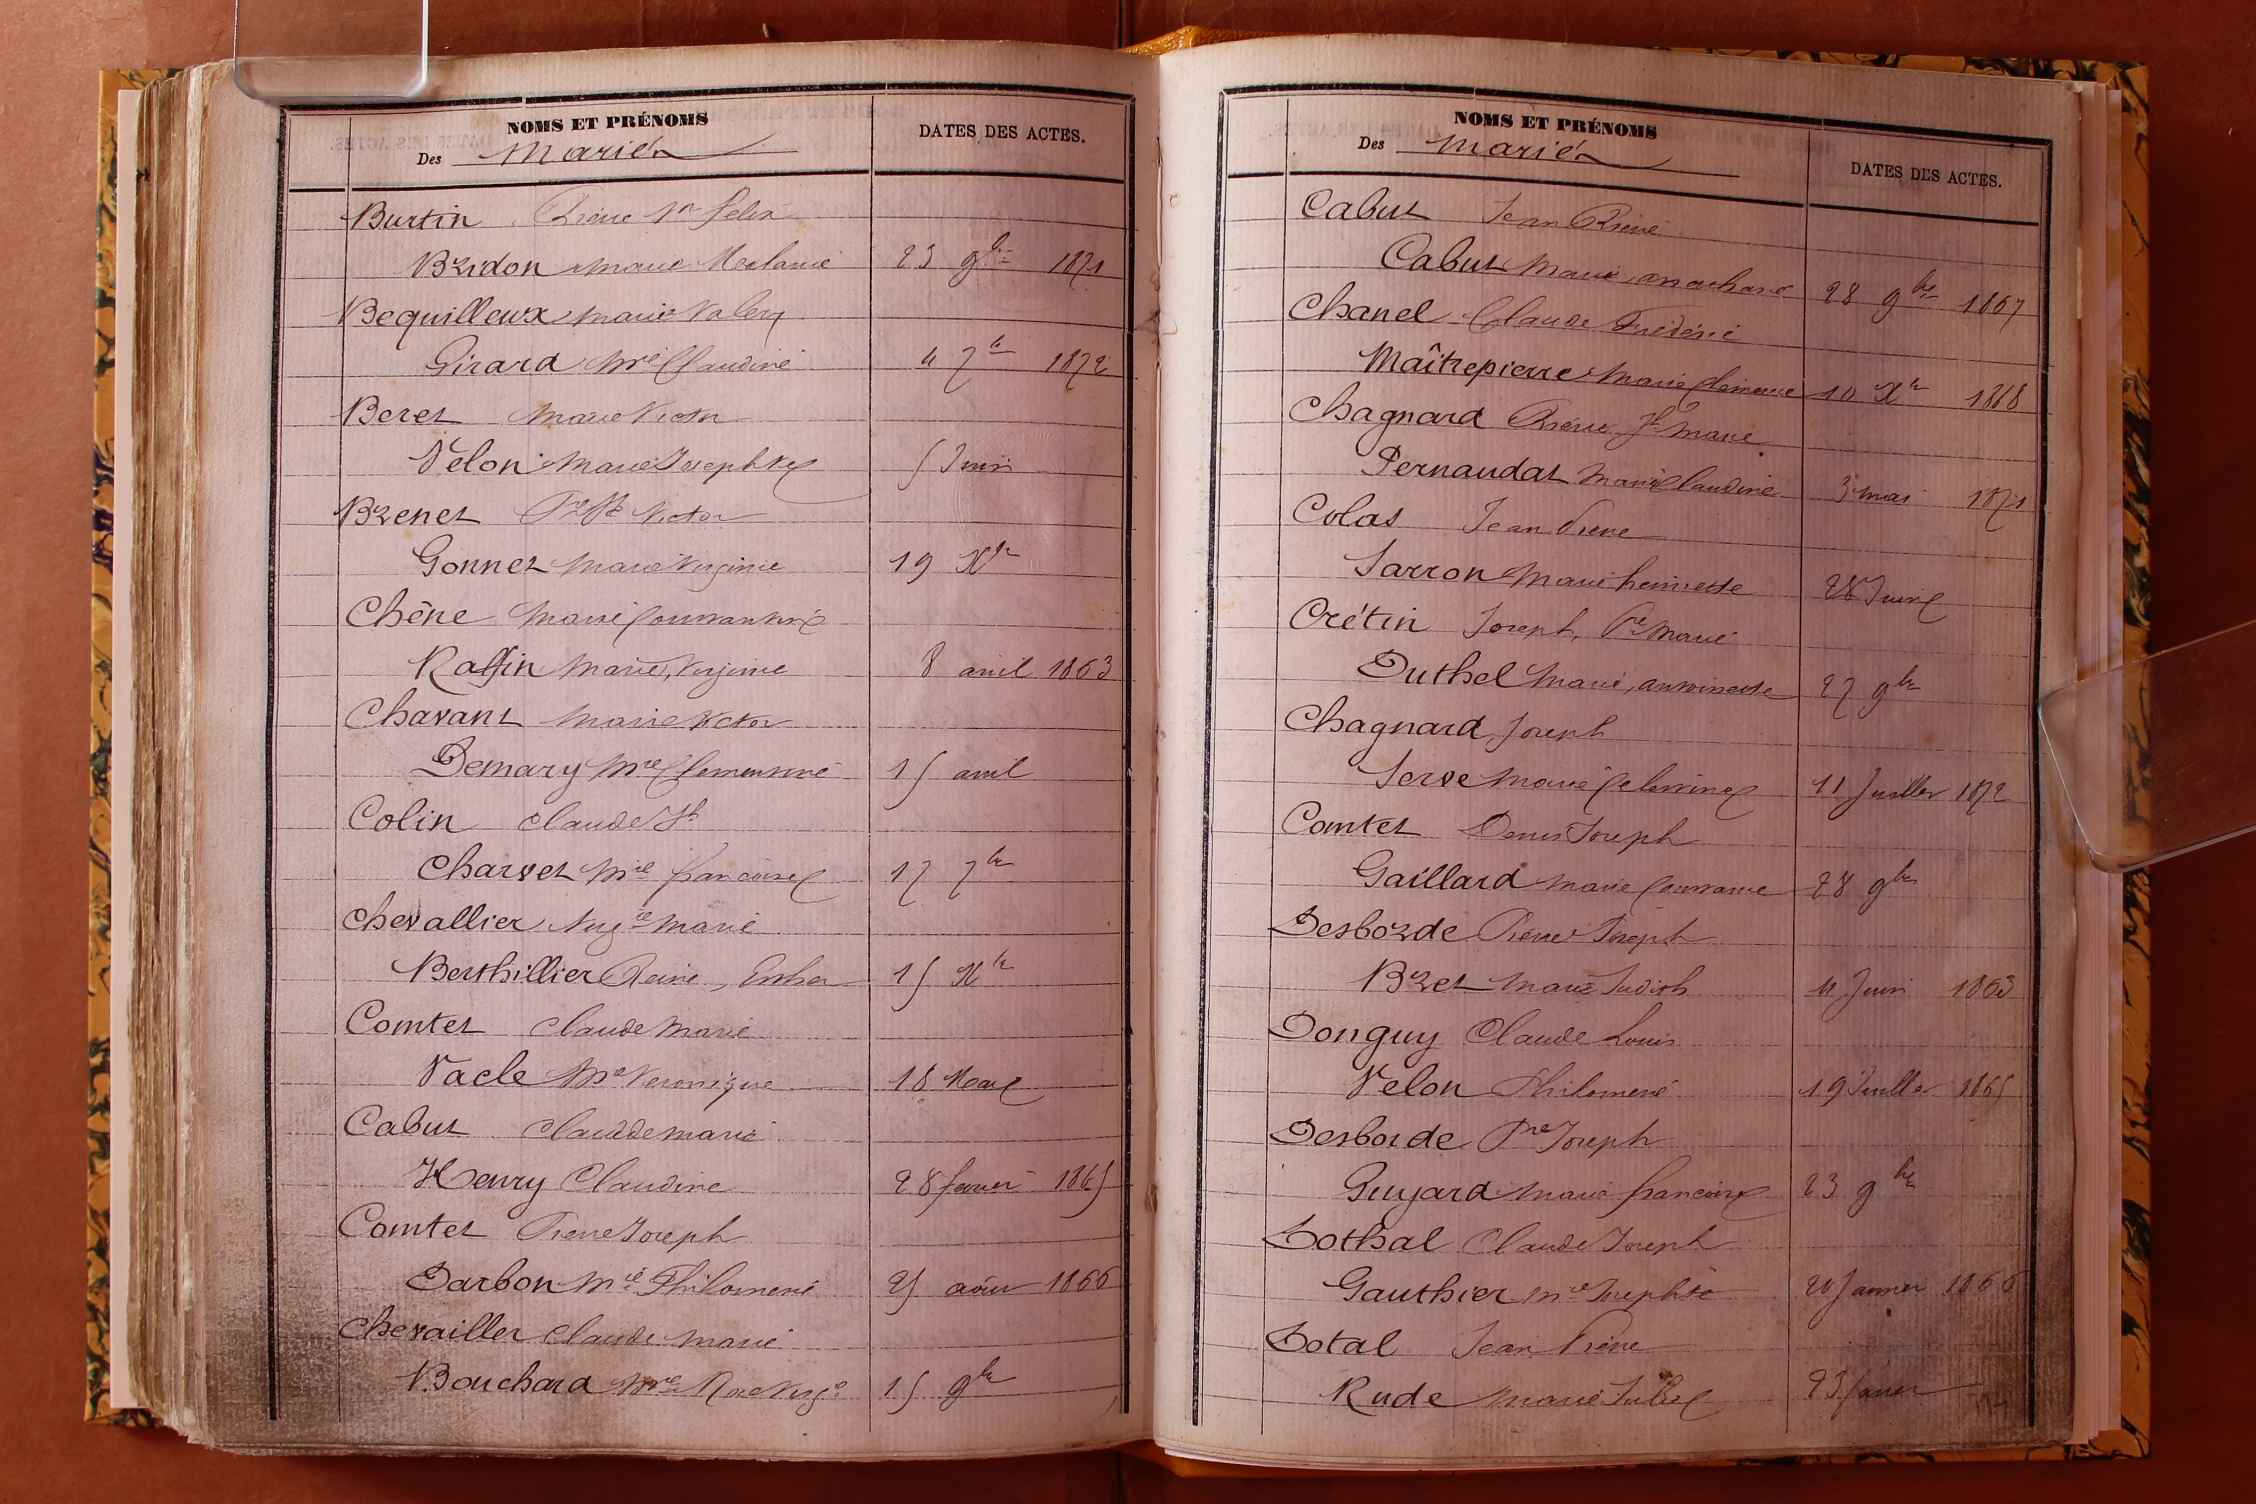 NOMS ET PRÉNOMS
Des Mariés
DATES DES ACTES.
Burtin Pierre Mie Felix
Bridon Marie Melanie 23 9bre 1871
Bequilleux Marie Valery
Girard Mie Claudine 4 7bre 1872
Beret Marie Victor
Velon Marie Josephte 5 Juin
Brenet Victor
Gonnet Marie Virginie 19 Xbre
Chêne Marie Constantin
Raffin Marie, Virginie 8 avril 1863
Chavant Marie Victor
Demary Mie Clementine 15 avril
Colin Claude Jh
Charvet Mie francoise 17 7bre
Chevallier Marie
Berthillier Reine, Esther 15 Xbre
Comtet Claude Marie
Vacle Mie Veronique 18 Mars
Cabut Claude Marie
Henry Claudine 28 fevrier 1865
Comtet Pierre Joseph
Darbon Mie Philomene 25 août 1866
Chevailler Claude Marie
Bouchard Mie 15 9bre
NOMS ET PRÉNOMS
Des Mariés
DATES DES ACTES.
Cabut Jean Pierre
Cabut Marie 28 9bre 1867
Chanel Claude Frédéric
Maîtrepierre Marie Clemence 10 Xbre 1868
Chagnard Pierre Jh Marie
Pernaudat Marie Claudine 3 mai 1871
Colas Jean Pierre
Sarron Marie henriette 28 Juin
Crétin Joseph, Pre Marie
Duthel Marie, antoinette 27 9bre
Chagnard Joseph
Serve Marie Celestine 11 Juillet 1872
Comtet Denis Joseph
Gaillard Marie Constance 28 9bre
Desborde Pierre Joseph
Bret Marie Judith 11 Juin 1863
Donguy Claude Louis
Velon Philomene 19 Juillet 1865
Desborde Pre Joseph
Guyard Marie francoise 23 9bre
Dothal Claude Joseph
Gauthier Mie Josephte 20 Janvier 1866
Dotal Jean Pierre
Rude Marie Julie 23 fevrier